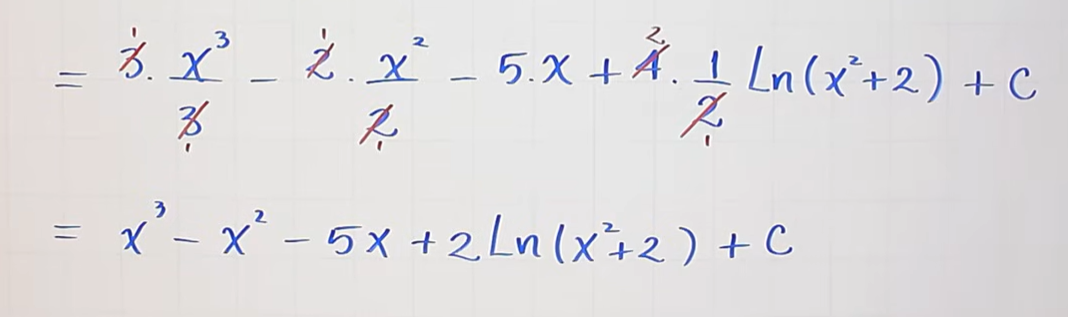 = 3. x³/3 - 2. x²/2 - 5.x + 4. 1/2 Ln(x²+2) + C
= x³ - x² - 5x + 2Ln(x²+2) + C